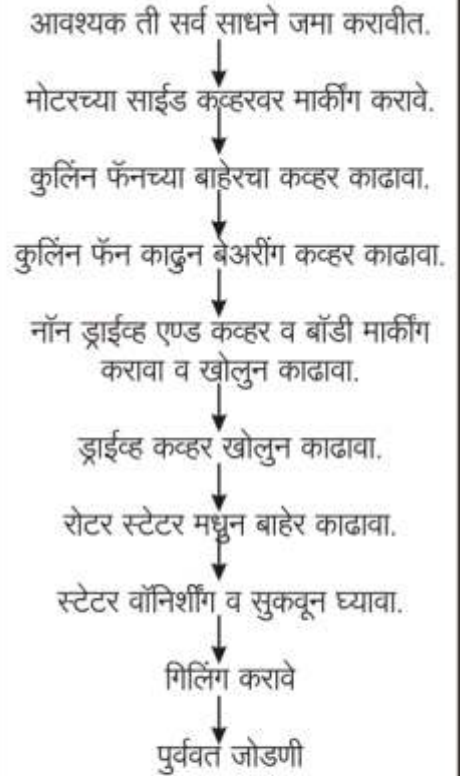 आवश्यक ती सर्व साधने जमा करावीत.
मोटरच्या साईड कव्हरवर मार्कींग करावे.
कुलिंन फॅनच्या बाहेरचा कव्हर काढावा.
कुलिंन फॅन काढुन बेअरींग कव्हर काढावा.
नॉन ड्राईव्ह एण्ड कव्हर व बॉडी मार्कींग
करावा व खोलुन काढावा.
ड्राईव्ह कव्हर खोलुन काढावा.
रोटर स्टेटर मधुन बाहेर काढावा.
स्टेटर वॉनिर्शींग व सुकवून घ्यावा.
गिलिंग करावे
पुर्ववत जोडणी